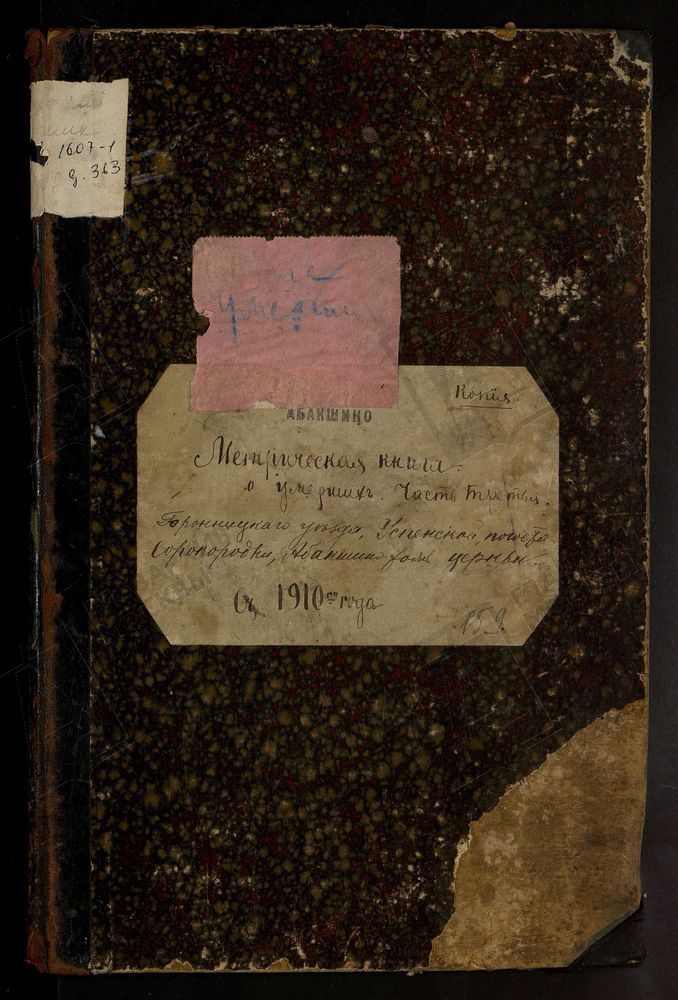 1607-1
д. 363
умерши
АБАКШИНО
Копія.
Метрическая книга
о умершихъ. Часть третья.
Бронницкаго уѣзда, Успенской, погоста
церкви
Съ 1910го года
159.